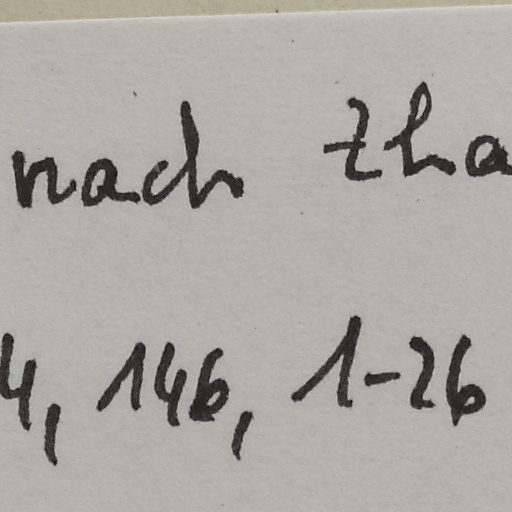 nach Zha
4, 146, 1-26